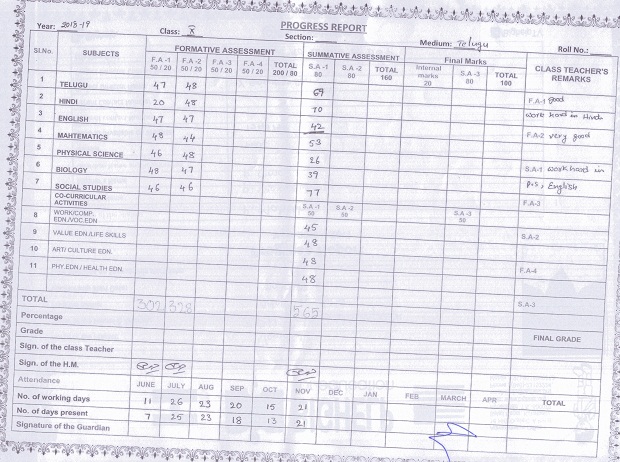 PROGRESS REPORT
Year: 2018-19 Class: X Section: Medium: Telugu Roll No.:
Sl.No. SUBJECTS FORMATIVE ASSESSMENT SUMMATIVE ASSESSMENT Final Marks CLASS TEACHER'S REMARKS
F.A -1 50 / 20 F.A -2 50 / 20 F.A -3 50 / 20 F.A -4 50 / 20 TOTAL 200 / 80 S.A -1 80 S.A -2 80 TOTAL 160 Internal marks 20 S.A -3 80 TOTAL 100
1 TELUGU 47 48 69 F.A-1 good
2 HINDI 20 48 70 work hard in Hindi
3 ENGLISH 47 47 42 F.A-2 very good
4 MAHTEMATICS 48 44 53
5 PHYSICAL SCIENCE 46 48 26 S.A-1 work hard in
6 BIOLOGY 48 47 39 P.S, English
7 SOCIAL STUDIES 46 46 77 F.A-3
CO-CURRICULAR ACTIVITIES S.A -1 50 S.A -2 50 S.A -3 50
8 WORK/COMP. EDN./VOC.EDN. 45 S.A-2
9 VALUE EDN./LIFE SKILLS 48
10 ART/ CULTURE EDN. 48 F.A-4
11 PHY.EDN / HEALTH EDN. 48
TOTAL 302 328 565 S.A-3
Percentage
Grade FINAL GRADE
Sign. of the class Teacher
Sign. of the H.M.
Attendance JUNE JULY AUG SEP OCT NOV DEC JAN FEB MARCH APR TOTAL
No. of working days 11 26 23 20 15 21
No. of days present 7 25 23 18 13 21
Signature of the Guardian